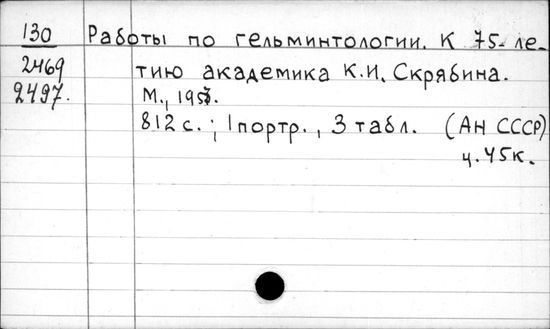 130 Работы по гельминтологии. К 75-ле-
2469 тию академика К.И. Скрябина.
2497. М., 1953.
812 с.; 1 портр., 3 табл. (АН СССР)
ц. 45к.